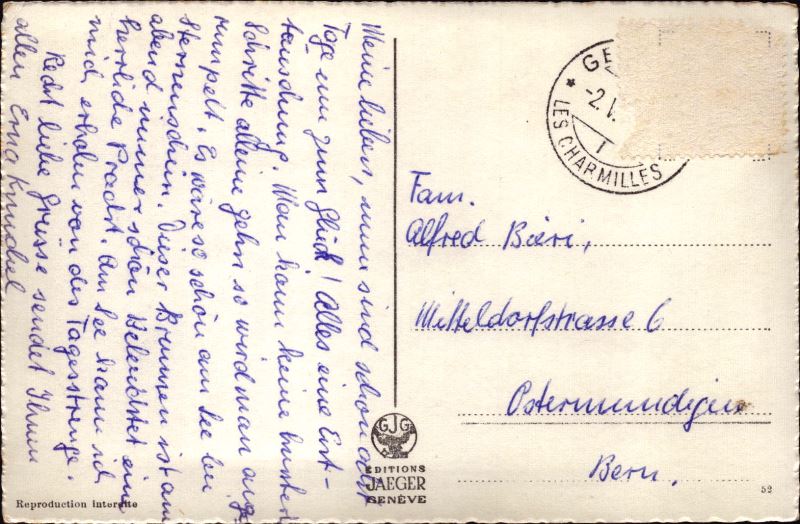 Meine lieben, nun sind schon acht
Tage um zum Glück! Alles eine Ent-
teuschung. Man kann keine hundert
Schritte alleine gehn so wird man ange
rumpelt. Es wäre so schön am See bei
Sternenschein. Dieser Brunnen ist am
abend immer schön Beleuchtet eine
herrliche Pracht. Am See kann ich
mich erholen von der Tagesstrenge.
Recht liebe Grüsse sendet Ihnen
allen Erna Knuchel
GE
* -2.V.
1
LES CHARMILLES
Fam.
Alfred Bieri,
Mitteldorfstrasse 6
Ostermundigen
Bern.
GJG
EDITIONS
JAEGER
GENÈVE
Reproduction interdite
52